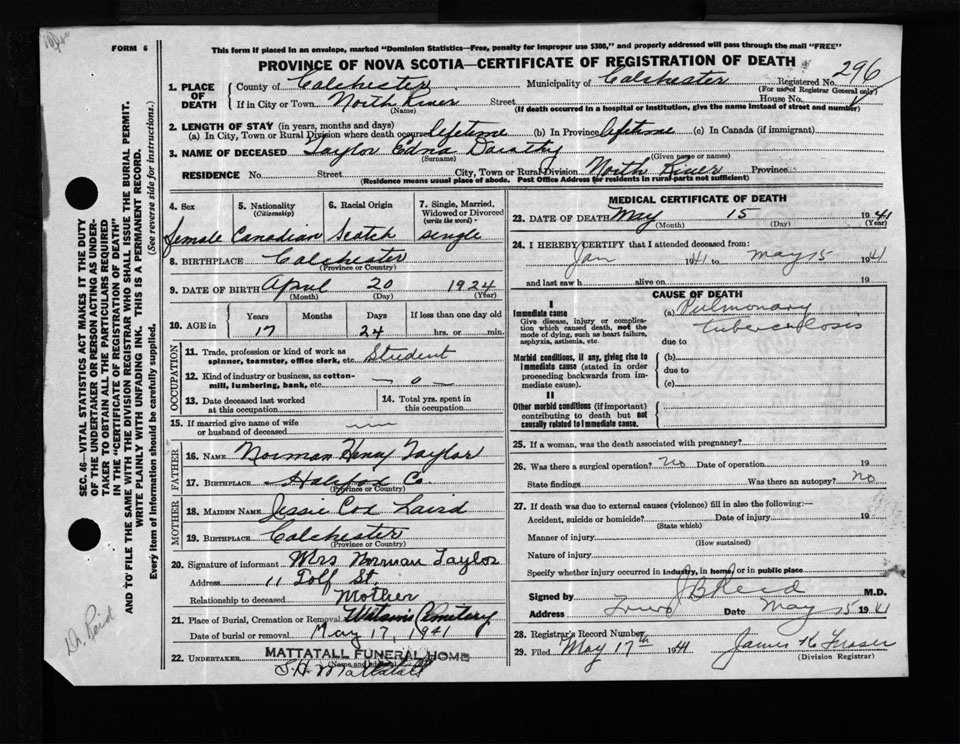 FORM 6
This form if placed in an envelope, marked "Dominion Statistics—Free, penalty for improper use $300," and properly addressed will pass through the mail "FREE"
PROVINCE OF NOVA SCOTIA—CERTIFICATE OF REGISTRATION OF DEATH
296
1. PLACE OF DEATH County of Colchester Municipality of Colchester Registered No.
(For use of Registrar General only)
If in City or Town North River Street House No.
(Name) (If death occurred in a hospital or institution, give the name instead of street and number)
2. LENGTH OF STAY (in years, months and days)
(a) In City, Town or Rural Division where death occurred lifetime (b) In Province lifetime (c) In Canada (if immigrant)
3. NAME OF DECEASED Taylor Edna Dorothy
(Surname) (Given name or names)
RESIDENCE No. Street City, Town or Rural Division North River Province
(Residence means usual place of abode. Post Office Address for residents in rural parts not sufficient)
SEC. 46—VITAL STATISTICS ACT MAKES IT THE DUTY
OF THE UNDERTAKER OR PERSON ACTING AS UNDER-
TAKER TO OBTAIN ALL THE PARTICULARS REQUIRED
IN THE "CERTIFICATE OF REGISTRATION OF DEATH"
AND TO FILE THE SAME WITH THE DIVISION REGISTRAR WHO SHALL ISSUE THE BURIAL PERMIT.
WRITE PLAINLY WITH UNFADING INK. THIS IS A PERMANENT RECORD.
Every item of information should be carefully supplied. (See reverse side for instructions.)
Dr Reid
4. Sex 5. Nationality (Citizenship) 6. Racial Origin 7. Single, Married, Widowed or Divorced (write the word)
female Canadian Scotch single
8. BIRTHPLACE Colchester
(Province or Country)
9. DATE OF BIRTH April 20 1924
(Month) (Day) (Year)
10. AGE in Years Months Days If less than one day old
17 24 hrs. or min.
OCCUPATION
11. Trade, profession or kind of work as spinner, teamster, office clerk, etc. Student
12. Kind of industry or business, as cotton-mill, lumbering, bank, etc. — o —
13. Date deceased last worked at this occupation
14. Total yrs. spent in this occupation
15. If married give name of wife or husband of deceased
FATHER
16. NAME Norman Henry Taylor
17. BIRTHPLACE Halifax Co.
(Province or Country)
MOTHER
18. MAIDEN NAME Jessie Cox Laird
19. BIRTHPLACE Colchester
(Province or Country)
20. Signature of informant Mrs Norman Taylor
Address 11 St.
Relationship to deceased Mother
21. Place of Burial, Cremation or Removal Watson's Cemetery
Date of burial or removal May 17, 1941
22. UNDERTAKER MATTATALL FUNERAL HOME
(Name and address)
Mattatall
MEDICAL CERTIFICATE OF DEATH
23. DATE OF DEATH May 15 1941
(Month) (Day) (Year)
24. I HEREBY CERTIFY that I attended deceased from:
Jan 1941 to May 15 1941
and last saw h alive on 19
CAUSE OF DEATH
I
Immediate cause (a) Pulmonary
Give disease, injury or complication which caused death, not the mode of dying, such as heart failure, asphyxia, asthenia, etc. Tuberculosis
due to
Morbid conditions, if any, giving rise to immediate cause (stated in order proceeding backwards from immediate cause). (b)
due to
(c)
II
Other morbid conditions (if important) contributing to death but not causally related to immediate cause.
25. If a woman, was the death associated with pregnancy?
26. Was there a surgical operation? No Date of operation 19
State findings Was there an autopsy? No
27. If death was due to external causes (violence) fill in also the following:—
Accident, suicide or homicide? Date of injury 19
(State which)
Manner of injury
(How sustained)
Nature of injury
Specify whether injury occurred in industry, in home, or in public place
Signed by J B Reid M.D.
Address Truro Date May 15 1941
28. Registrar's Record Number
29. Filed May 17th 1941 James K Fraser
(Division Registrar)